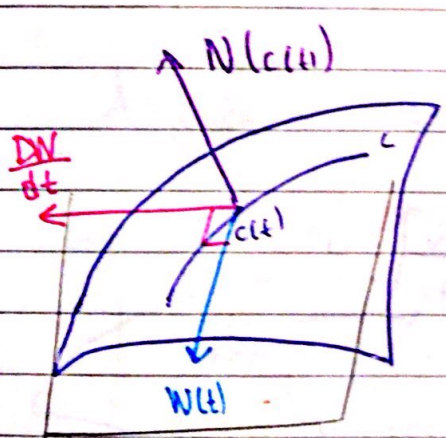 N(c(t))
DW
dt
c
c(t)
W(t)